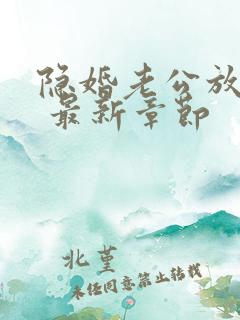 隐婚老公放
最新章节
北堇
未经同意禁止转载